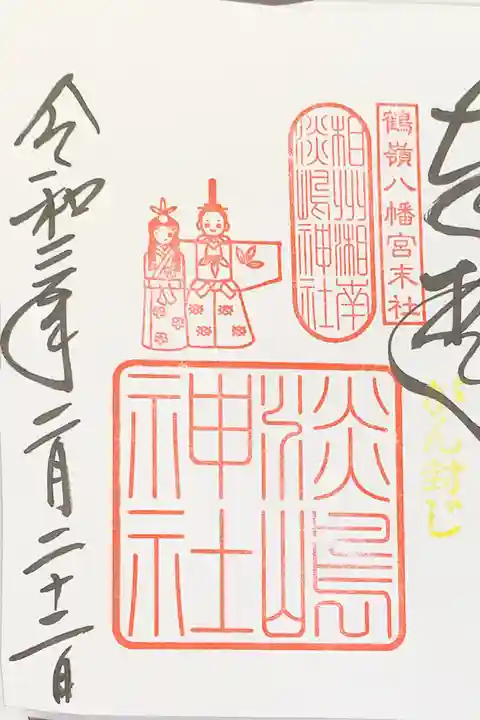 鶴嶺八幡宮末社
がん封じ
相州湘南
淡嶋神社
淡嶋
神社
令和三年二月二十二日